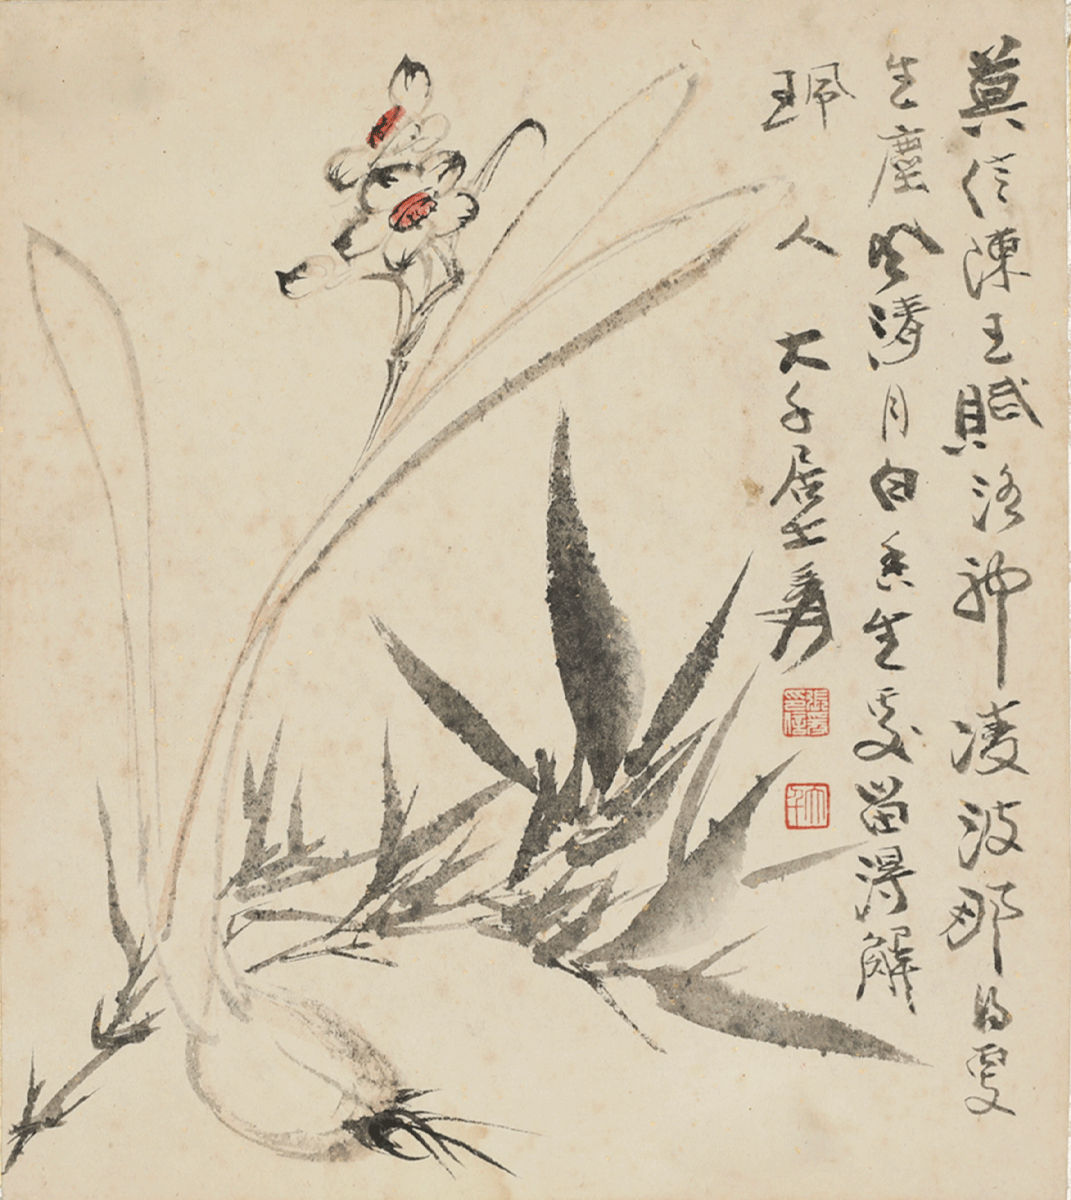 莫信陳王賦洛神凌波那得更
生塵風清月白香生處留得解
珮人
大千居士爰
張爰印信
大千